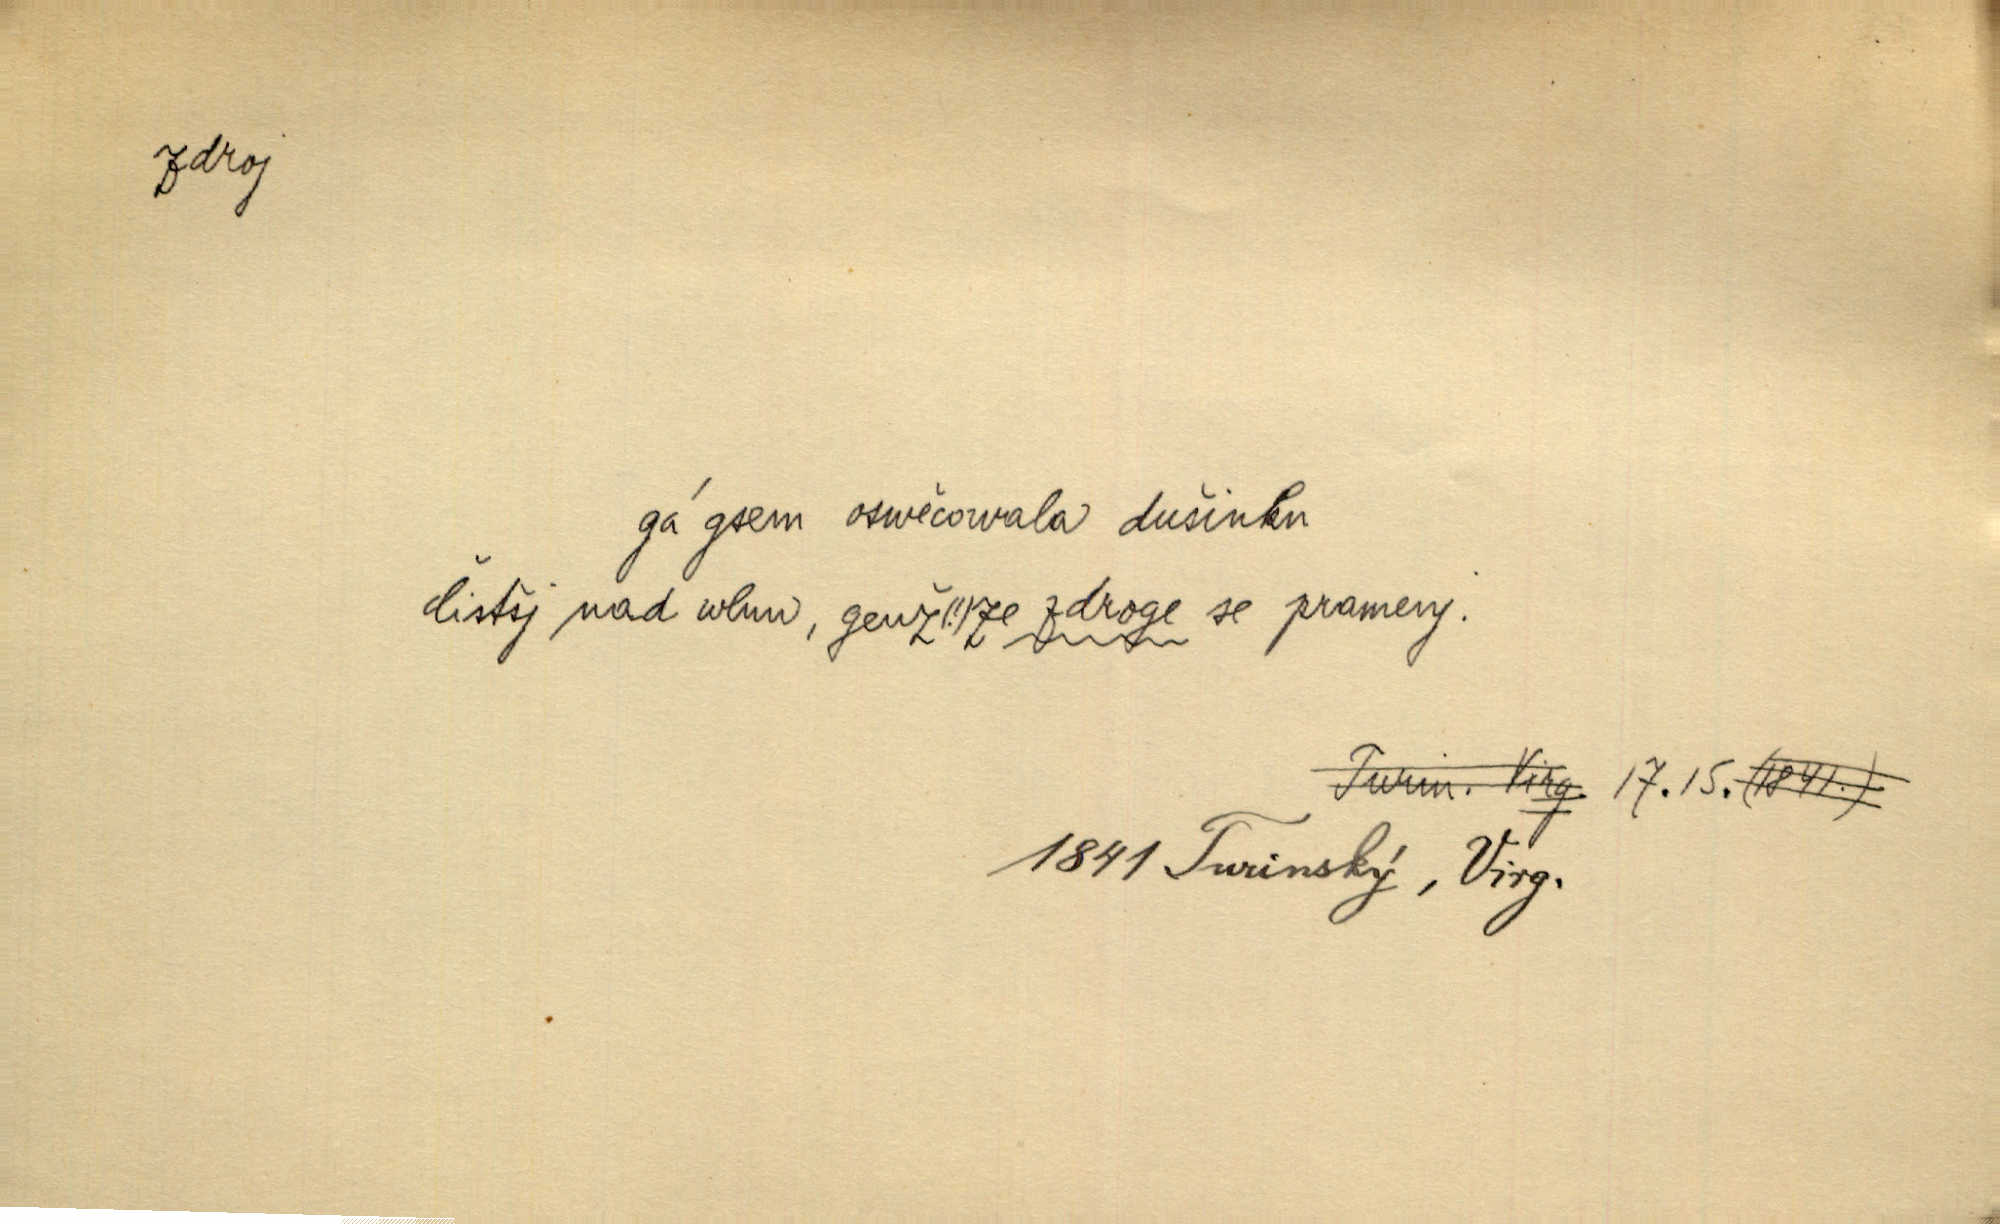 zdroj
gá gsem oswěcowala dušinku
čistšj nad wlnu, genž(!) ze zdroge se prameny.
Turin. Virg. 17.15. (1841.)
1841 Turinský, Virg.